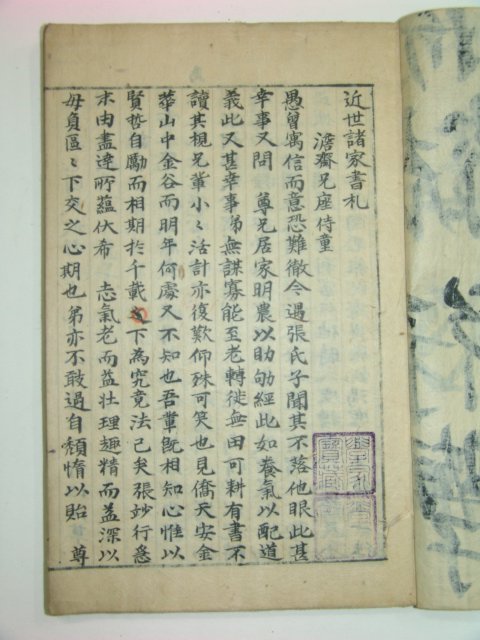 近世諸家書札
澹齋兄座侍童
愚曾寓信而意恐難徹今遇張氏子聞其不落他眼此甚
幸事又問 尊兄居家明農以助劬經此如養氣以配道
義此又甚幸事弟無謀寡能至老轉徙無田可耕有書不
讀其視兄輩小〻活計亦復歎仰殊可笑也見僑天安金
華山中金谷而明年何處又不知也吾輩旣相知心惟以
賢哲自勵而相期於千載之下為究竟法已矣張妙行忩
末由盡達所蘊伏希 志氣老而益壯理趣精而益深以
毋負區〻下交之心期也弟亦不敢過自頹惰以貽 尊